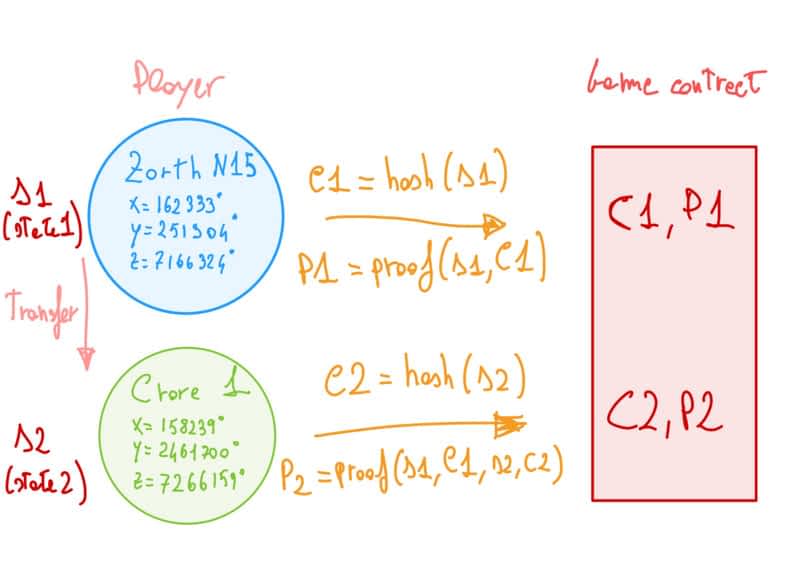 Player
Game contract
S1
(state1)
Zorth N15
X=162333°
Y=251304°
Z=7166324°
C1=hash(S1)
P1=proof(S1,C1)
C1,P1
Transfer
S2
(state2)
Crore 1
X=158239°
Y=2461700°
Z=7266159°
C2=hash(S2)
P2=proof(S1,C1,S2,C2)
C2,P2